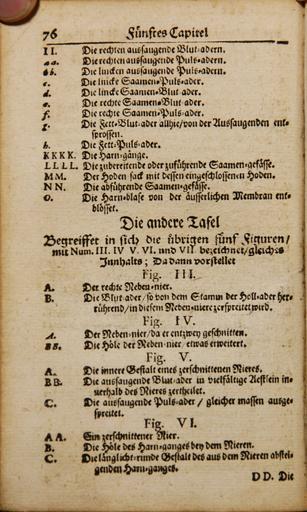 76 Fünftes Capitel
II. Die rechten aussaugende Blut-adern.
aa. Die rechten aussaugende Puls-adern.
bb. Die lincken aussaugende Puls-adern.
c. Die lincke Saamen-Puls-ader.
d. Die lincke Saamen-Blut-ader.
e. Die rechte Saamen-Blut-ader.
f. Die rechte Saamen-Puls-ader.
g. Die Fett-Blut-ader allhie/von der Aussaugenden ent-
sprossen.
h. Die Fett-Puls-ader.
KKKK. Die Harn-gänge.
LLLL. Die zubereitende oder zuführende Saamen-gefässe.
MM. Der Hoden sack mit dessen eingeschlossenen Hoden.
NN. Die abführende Saamen-gefässe.
O. Die Harn-blase von der äusserlichen Membran ent-
blösset.
Die andere Tafel
Begreiffet in sich die übrigen fünf Figuren/
mit Num. III. IV. V. VI. und VII bezeichnet/gleiches
Innhalts; Da dann vorstellet
Fig. III.
A. Der rechte Neben-nier.
B. Die Blut-ader/so von dem Stamm der Holl-ader her-
rührend/in diesem Neben-niere zerspreitet wird.
Fig. IV.
A. Der Neben-nier/da er entzwey geschnitten.
BB. Die Höle der Neben-nier/etwas erweitert.
Fig. V.
A. Die innere Gestalt eines zerschnittenen Nieres.
BB. Die aussaugende Blut-ader in vielfältige Aestlein in-
nerhalb des Nieres zertheilet.
C. Die aussaugende Puls-ader / gleicher massen ausge-
spreitet.
Fig. VI.
AA. Ein zerschnittener Nier.
B. Die Höle des Harn-ganges bey dem Nieren.
C. Die länglicht-runde Gestalt des aus dem Nieren abstei-
genden Harn-ganges.
DD. Die